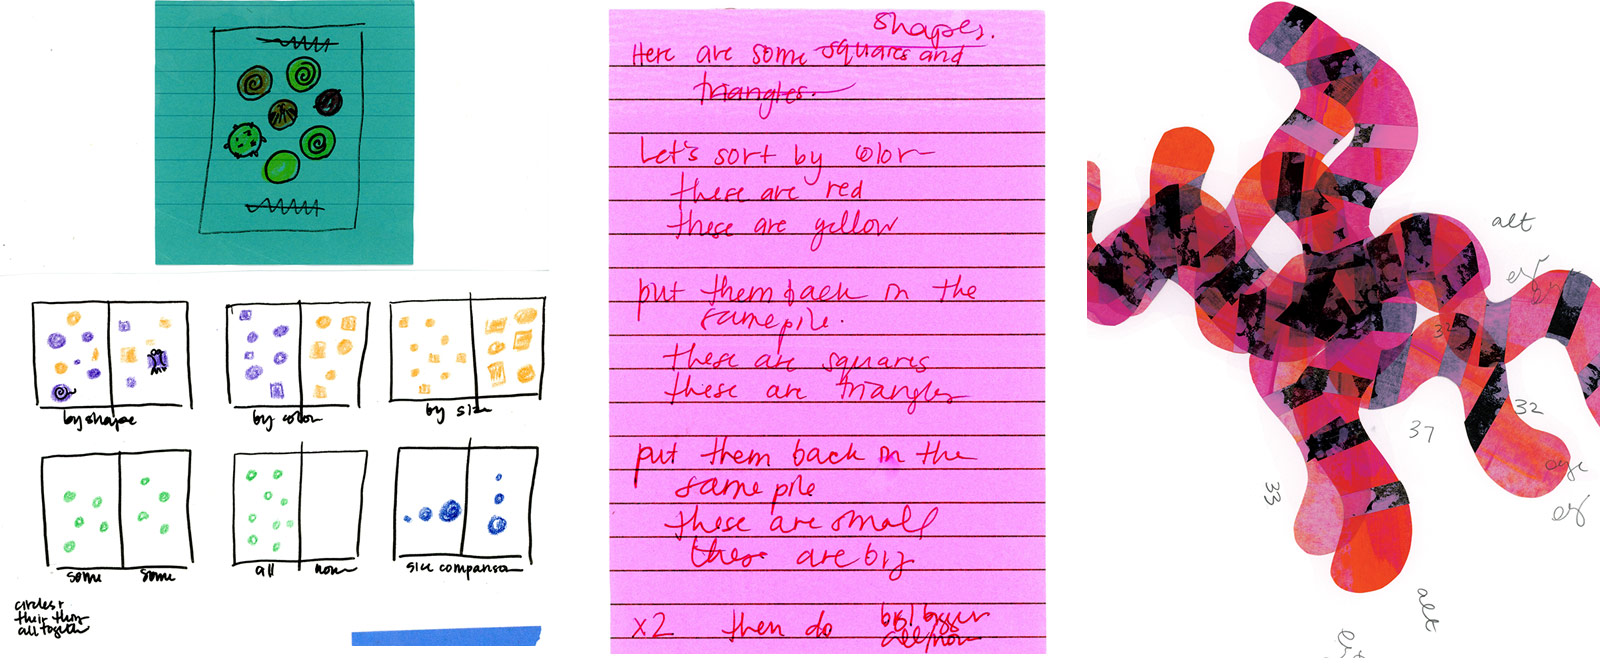 by shape
by color
by size
some some
all none
size comparison
circles +
their
all together
shapes.
Here are some squares and
triangles.
Let's sort by color
these are red
these are yellow
put them back in the
same pile.
these are squares
these are triangles
put them back in the
same pile
these are small
these are big
x2 then do big/bigger
all/none
alt
32
32
37
33
alt